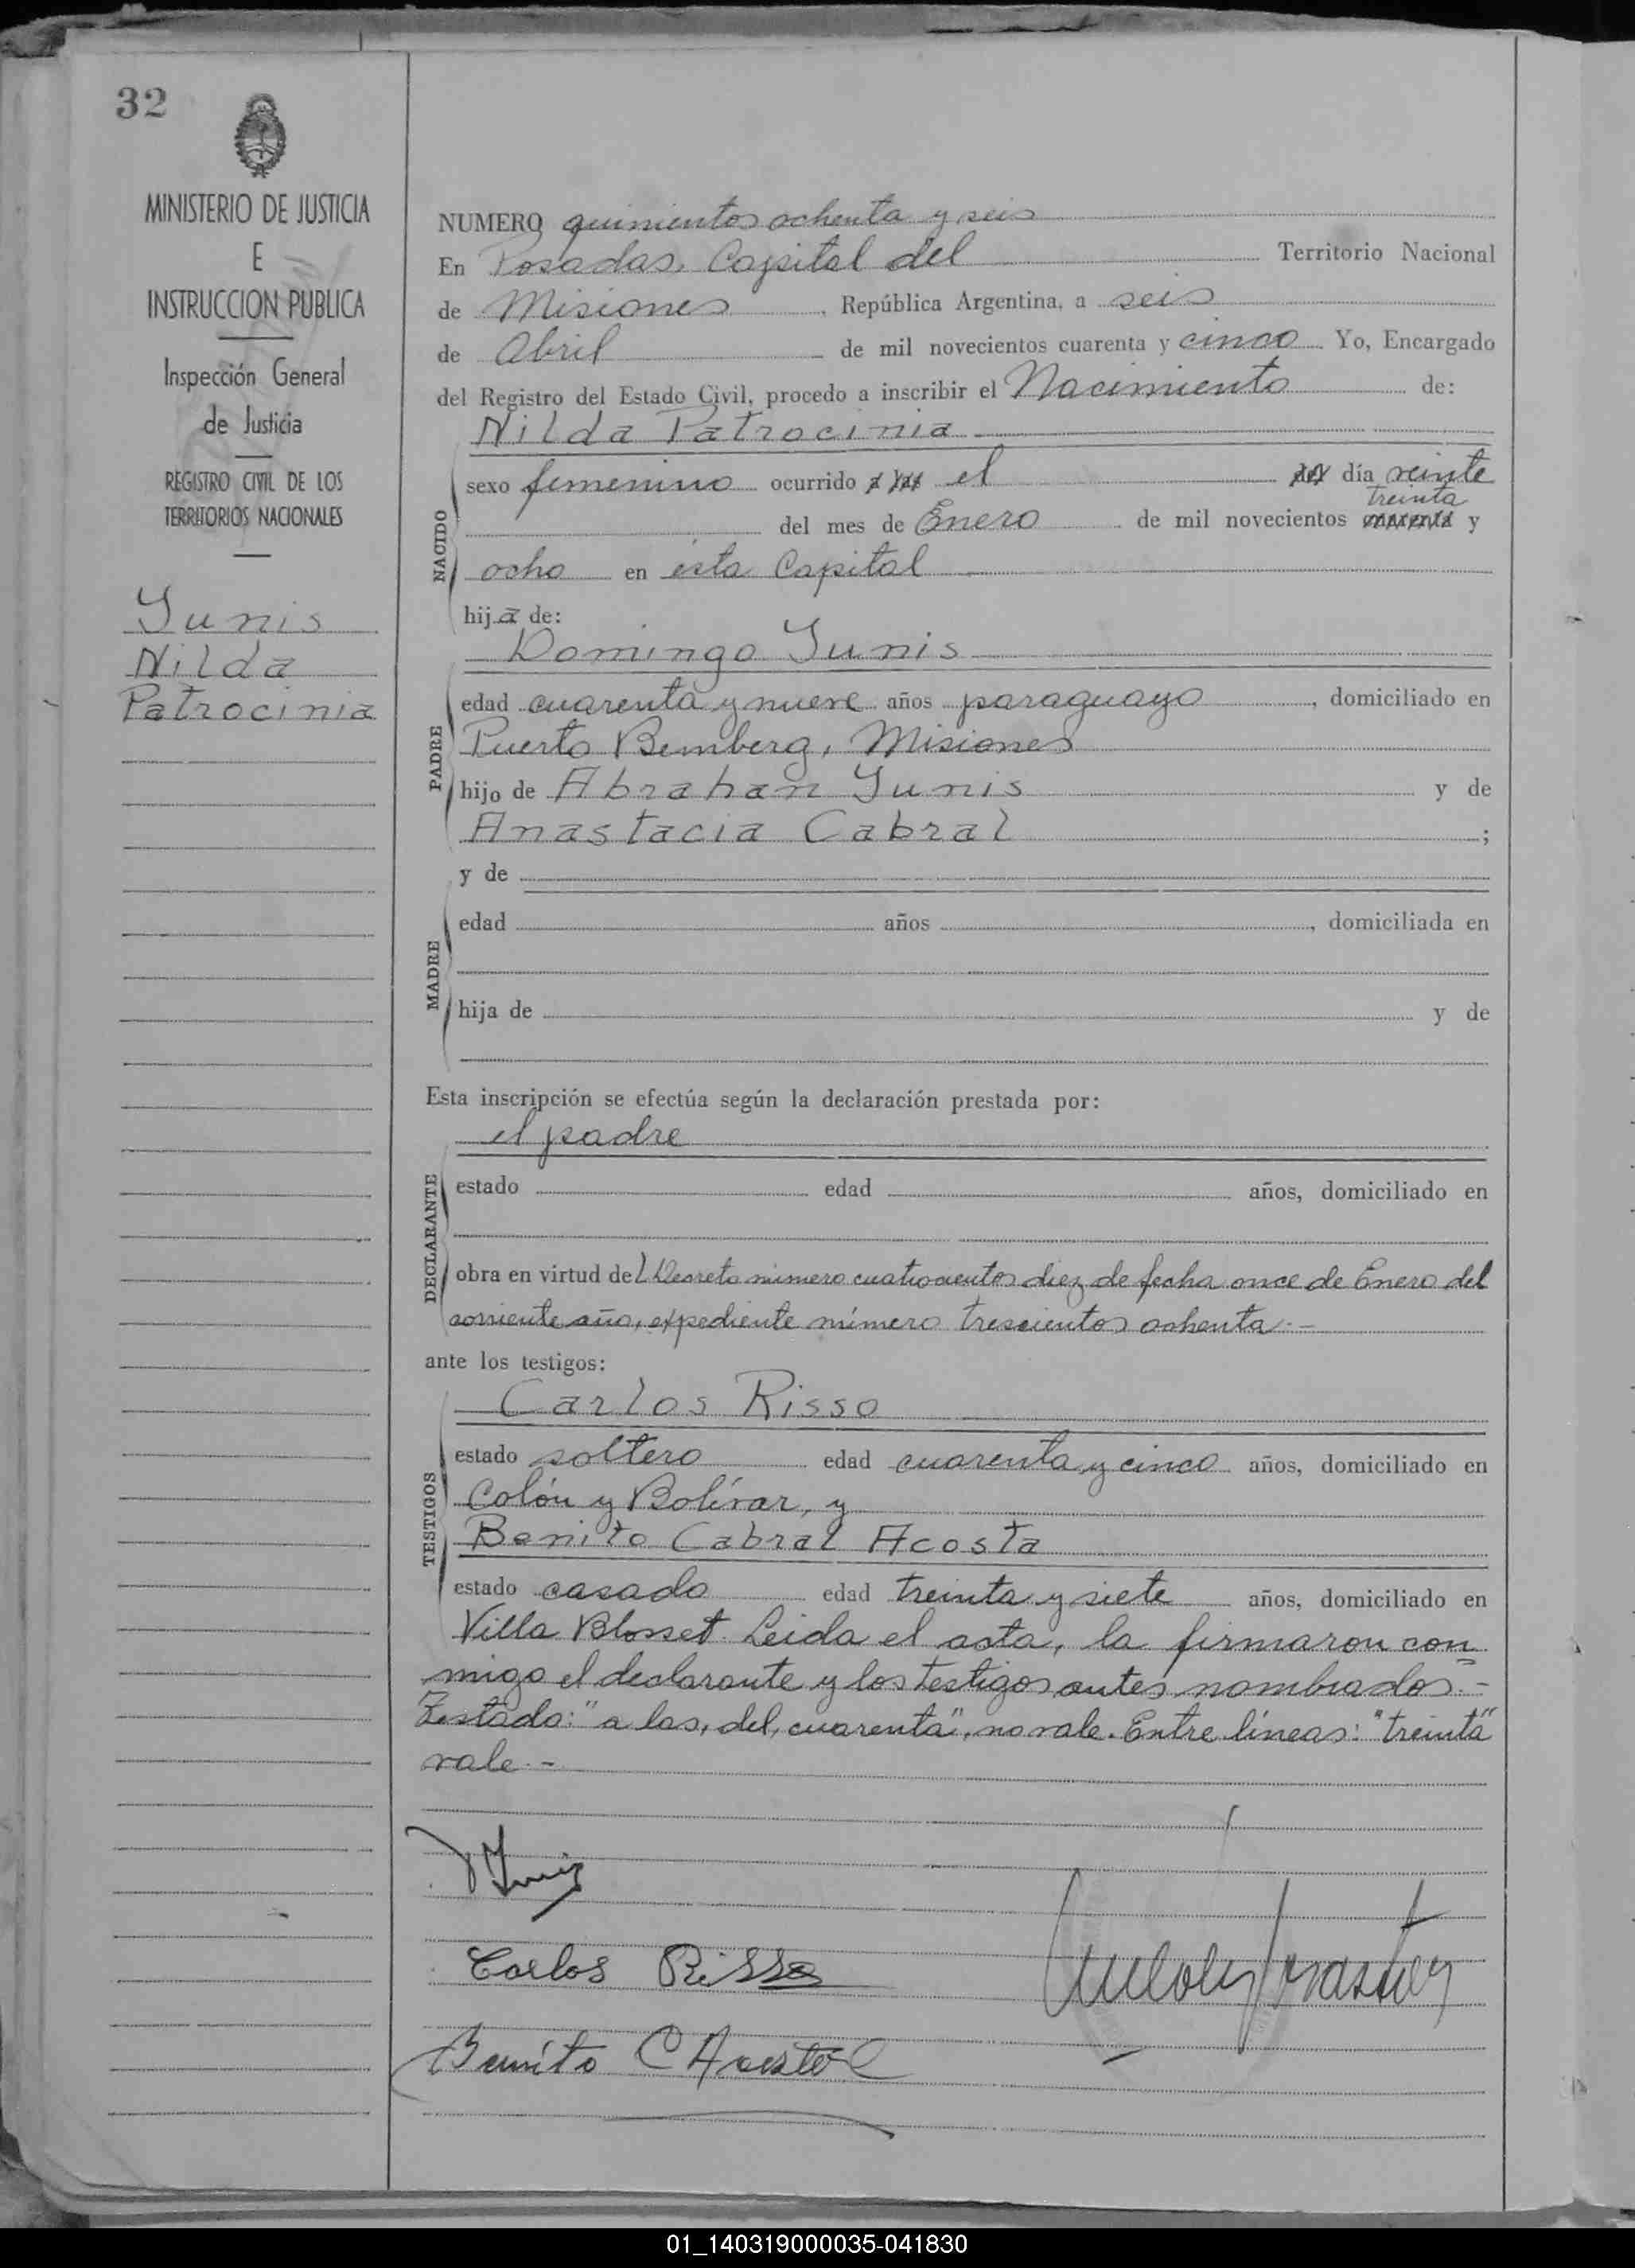 32
MINISTERIO DE JUSTICIA
E
INSTRUCCION PUBLICA
Inspección General
de Justicia
REGISTRO CIVIL DE LOS
TERRITORIOS NACIONALES
Yunis
Nilda
Patrocinia
NUMERO quinientos ochenta y seis
En Posadas, Capital del Territorio Nacional
de Misiones, República Argentina, a seis
de Abril de mil novecientos cuarenta y cinco Yo, Encargado
del Registro del Estado Civil, procedo a inscribir el Nacimiento de:
Nilda Patrocinia
NACIDO
sexo femenino ocurrido a las el del día veinte
treinta
del mes de Enero de mil novecientos cuarenta y
ocho en ésta Capital
hija de:
Domingo Yunis
PADRE
edad cuarenta y nueve años paraguayo, domiciliado en
Puerto Bemberg, Misiones
hijo de Abrahan Yunis y de
Anastacia Cabral;
y de
MADRE
edad años, domiciliada en
hija de y de
Esta inscripción se efectúa según la declaración prestada por:
el padre
DECLARANTE
estado edad años, domiciliado en
obra en virtud del Decreto número cuatrocientos diez de fecha once de Enero del
corriente año, expediente número trescientos ochenta.-
ante los testigos:
Carlos Risso
TESTIGOS
estado soltero edad cuarenta y cinco años, domiciliado en
Colón y Bolívar, y
Benito Cabral Acosta
estado casado edad treinta y siete años, domiciliado en
Villa Blosset. Leida el acta, la firmaron con
migo el declarante y los testigos antes nombrados.-
Testado: "a las, del, cuarenta", no vale. Entre líneas: "treinta"
vale.-
Yunis
Carlos Risso
Benito C Acosta
01_140319000035-041830